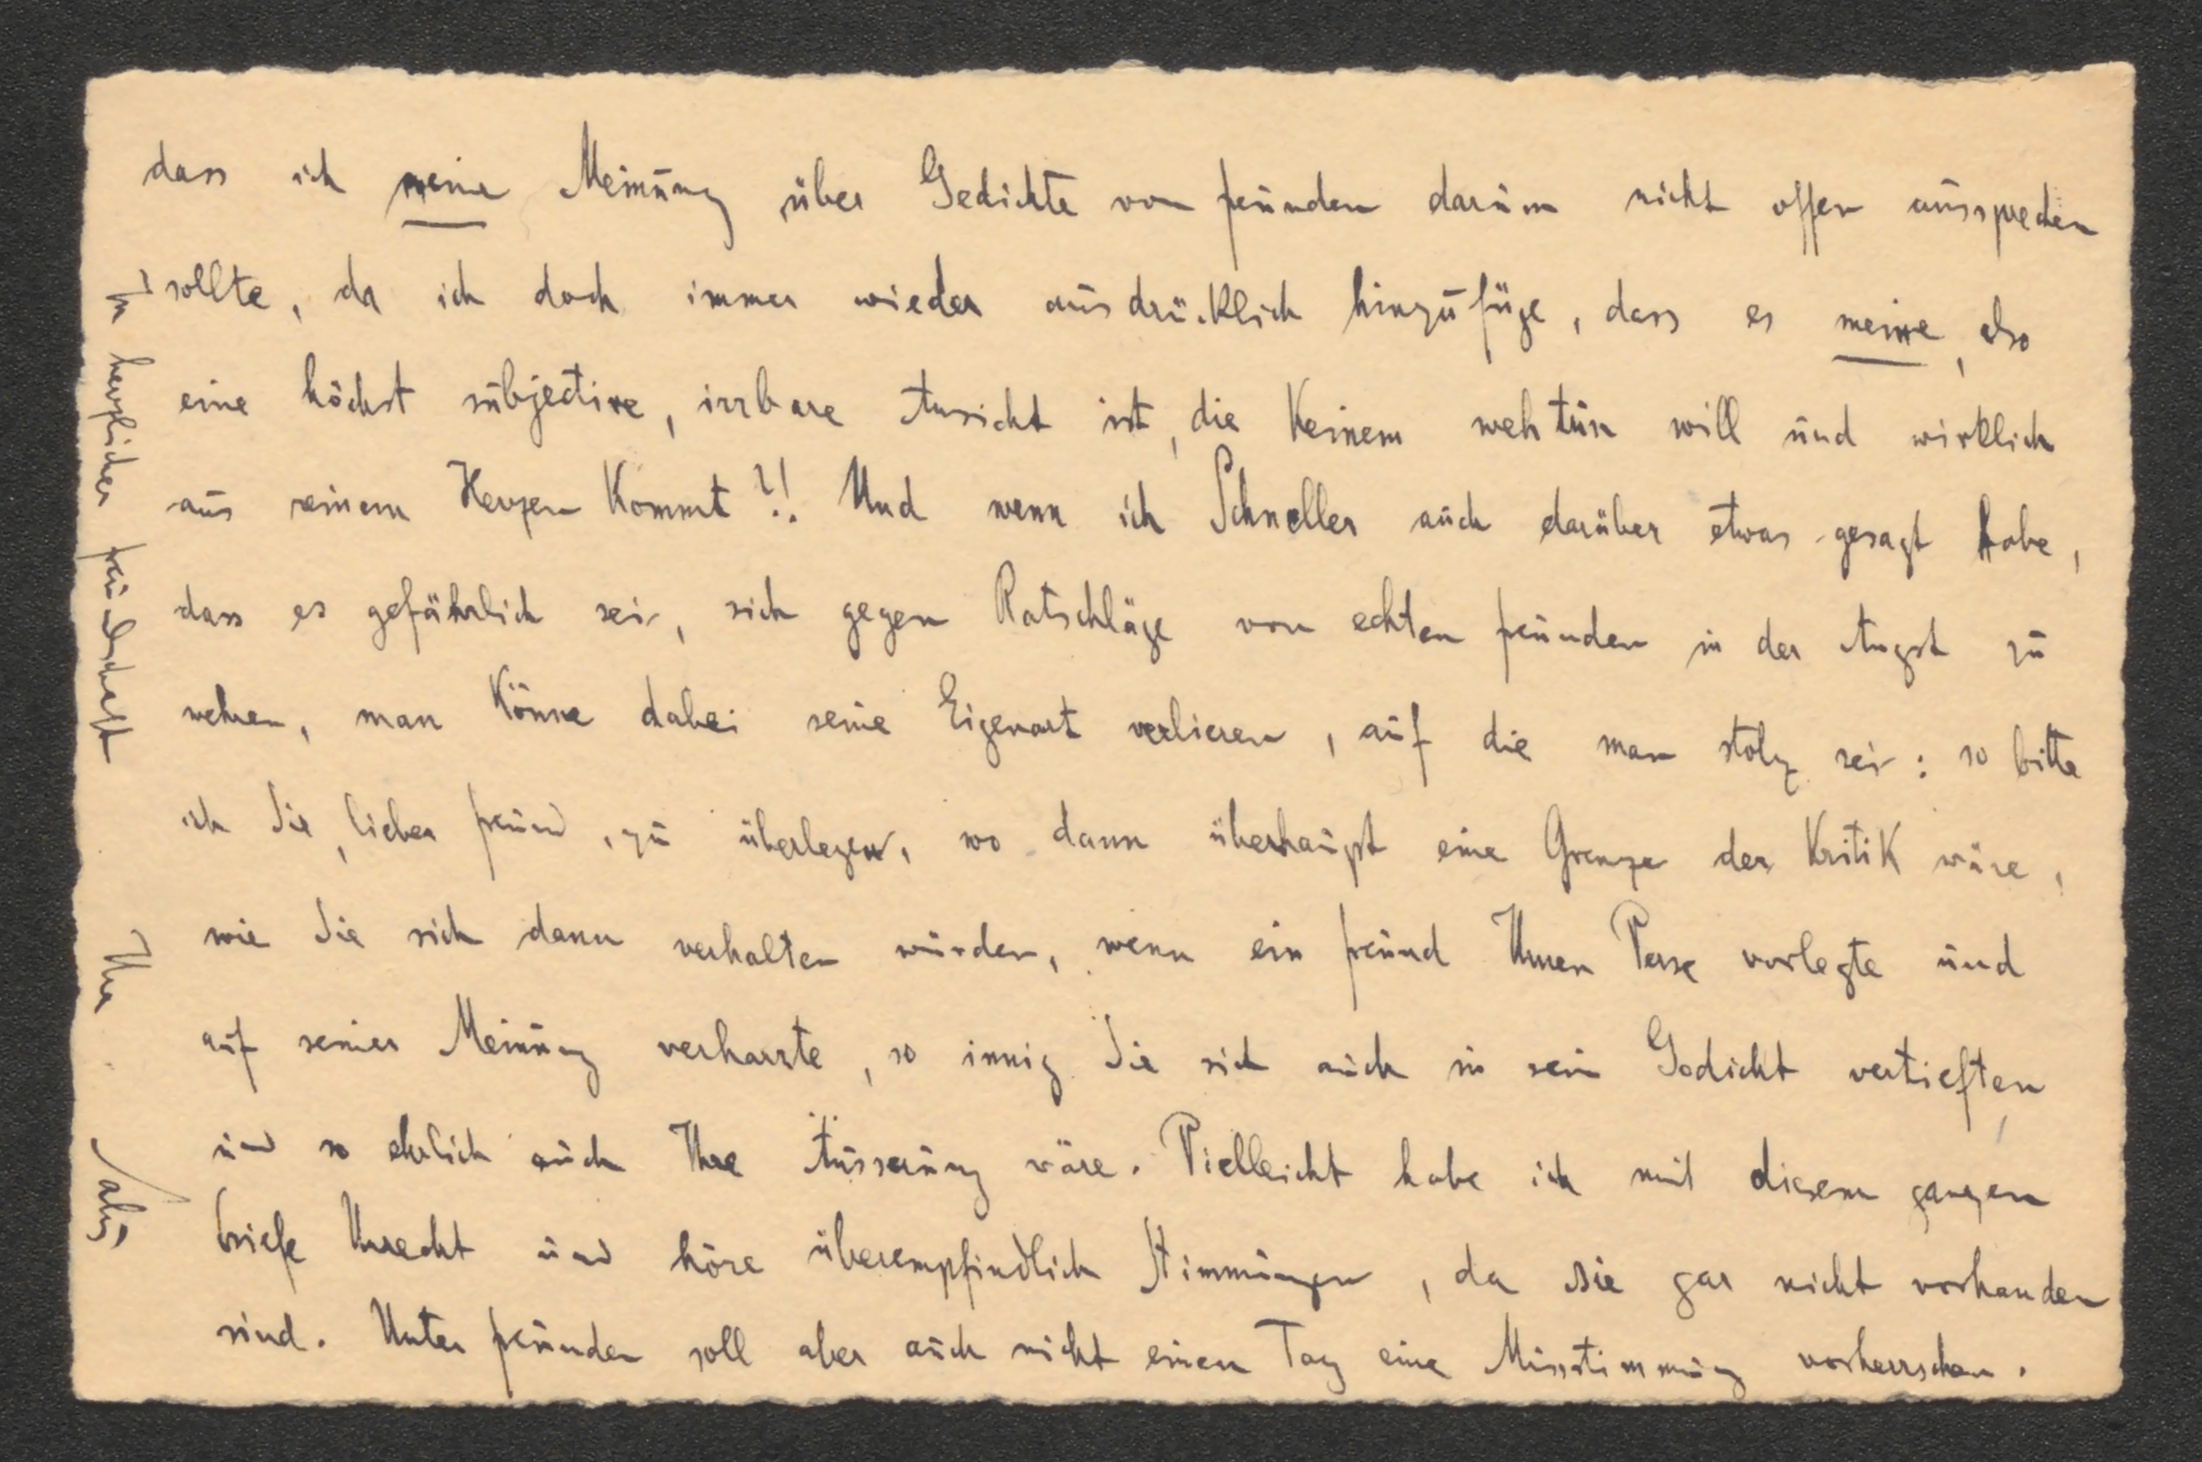 dass ich meine Meinung über Gedichte von Freunden darum nicht offen aussprechen
sollte, da ich doch immer wieder ausdrücklich hinzufüge, dass es meine, also
eine höchst subjective, irrbare Ansicht ist, die Keinem weh tun will und wirklich
aus reinem Herzen kommt?! Und wenn ich Schneller auch darüber etwas gesagt habe,
dass es gefährlich sei, sich gegen Ratschläge von echten Freunden in der Angst zu
wehren, man könne dabei seine Eigenart verlieren, auf die man stolz sei: so bitte
ich Sie, lieber Freund, zu überlegen, wo dann überhaupt eine Grenze der Kritik wäre,
wie Sie sich dann verhalten würden, wenn ein Freund Ihnen Verse vorlegte und
auf seiner Meinung verharrte, so innig Sie sich auch in sein Gedicht vertieften,
und so ehrlich auch Ihre Äusserung wäre. Vielleicht habe ich mit diesem ganzen
Briefe Unrecht und höre überempfindlich Stimmungen, da sie gar nicht vorhanden
sind. Unter Freunden soll aber auch nicht einen Tag eine Missstimmung vorherrschen.
In herzlicher Freundschaft
Ihr